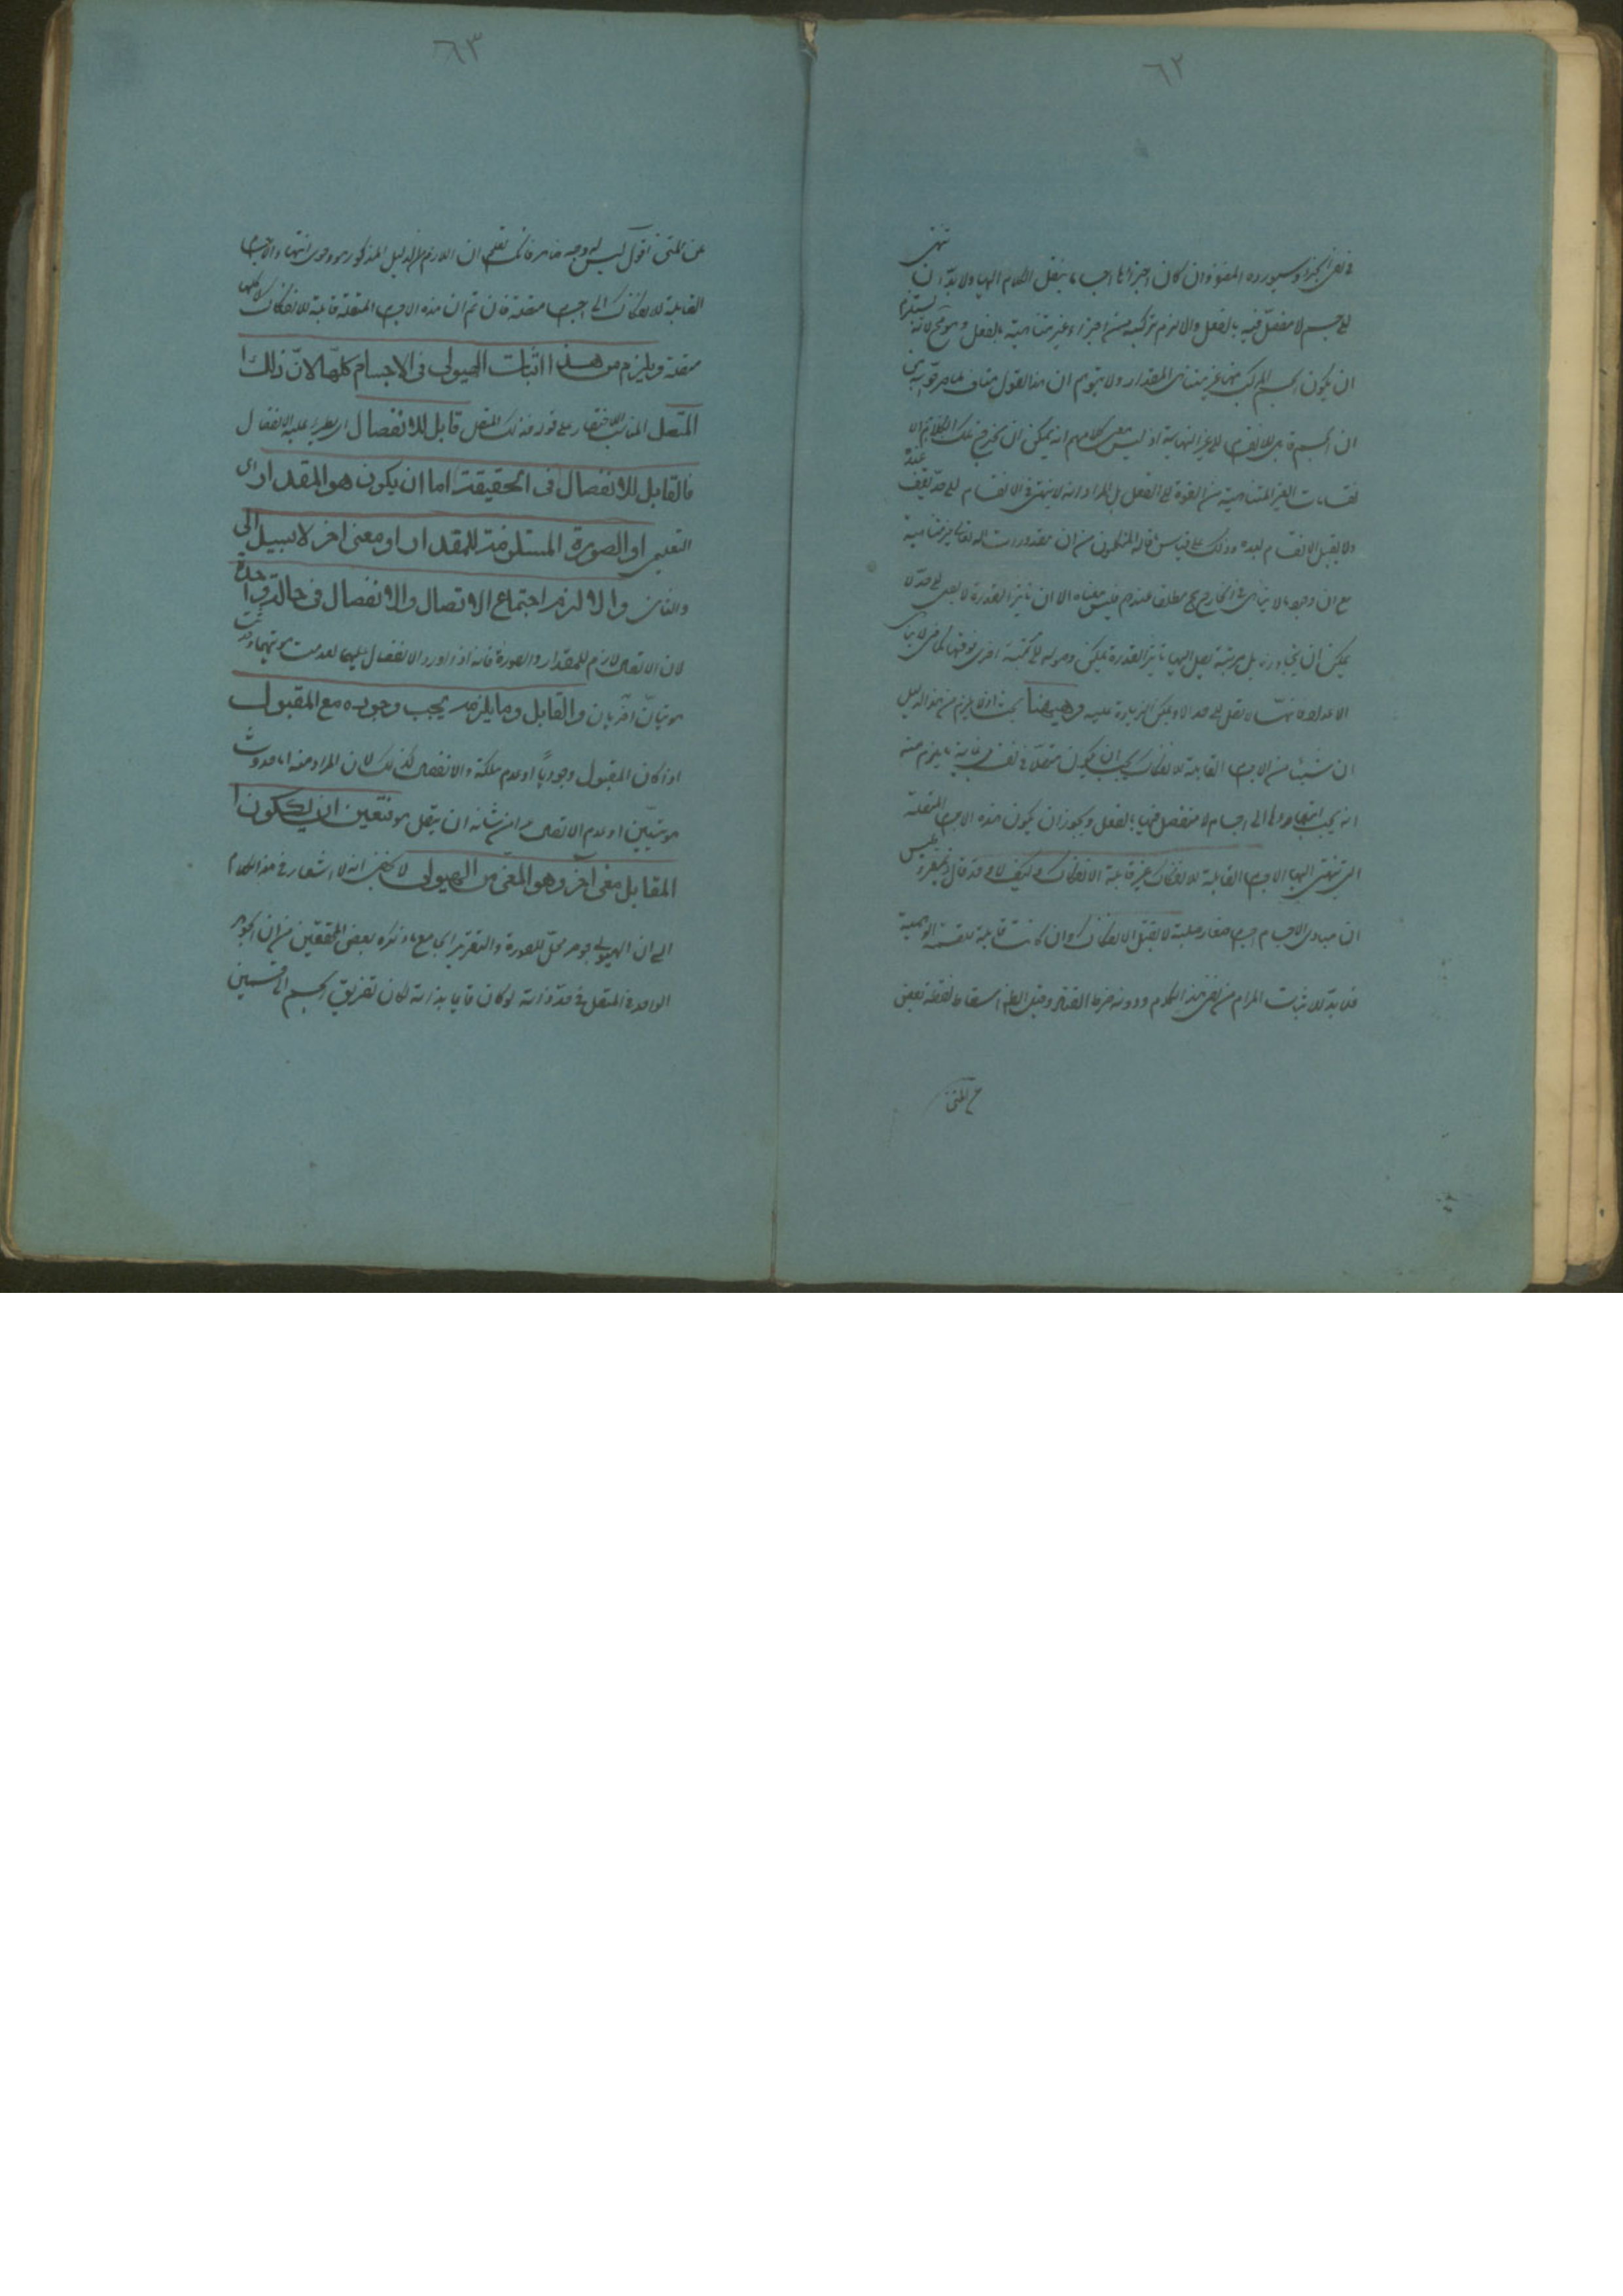 ٦٢
فى نفى الجزء وسيورده المصنف وان كان اجزائها اجساما ينقل الكلام اليها ولا بد ان تنتهى
الى جسم لا مفصل فيه بالفعل والا لزم تركبه من اجزاء غير متناهية بالفعل وهو مح لانه يستلزم
ان يكون الجسم المركب منها غير متناهى المقدار ولا يتوهم ان هذا القول مناف لما صرحوا به من
ان الجسم قابل للانقسام الى غير النهاية اذ ليس معنى كلامهم انه يمكن ان يخرج تلك الا
نقسامات الغير المتناهية من القوة الى الفعل بل المراد انه لا ينتهى فى الانقسام الى حد يقف عنده
ولا يقبل الانقسام بعده وذلك على قياس ما قاله المتكلمون من ان مقدورات الله تعالى غير متناهية
مع ان وجود ما لا يتناهى فى الخارج مح مطلقا عندهم فليس معناه الا ان تاثير القدرة لا يصل الى حد لا
يمكن ان يتجاوزه بل كل مرتبة يصل اليها تاثير القدرة يمكن وصوله الى مرتبة اخرى فوقها كما فى لا تناهى
الاعداد فانها لا تصل الى حد الا ويمكن الزيادة عليه وههنا بحث اذ لا يلزم من هذا الدليل
ان شيئا من الاجسام القابلة للانفكاك يجب ان يكون متصلا فى نفسه غاية ما يلزم منه
انه يجب انتهاؤها الى اجسام لا منفصل فيها بالفعل ويجوز ان يكون هذه الاجسام المتصلة
التى تنتهى اليها الاجسام القابلة للانفكاك غير قابلة الانفكاك وكيف لا وقد قال ذيمقراطيس
ان مبادى الاجسام اجسام صغار صلبة لا يقبل الانفكاك وان كانت قابلة للقسمة الوهمية
فلا بد لاثبات المرام من نفى هذا الكلام ودونه خرط القتاد وقيل الظاهر اسقاط لفظة بعض
عن المتن
٦٣
عن المتن اقول ليس له وجه ظاهر فانك تعلم ان اللازم من الدليل المذكور هو وجوب انتهاء الاجسام
القابلة للانفكاك الى اجسام متصلة فان تم ان هذه الاجسام المتصلة قابلة للانفكاك
متصلة ويلزم من هذا اثبات الهيولى فى الاجسام كلها لان ذلك
المتصل قابل للانفصال اى يطرء عليه الانفصال
فالقابل للانفصال فى الحقيقة اما ان يكون هو المقدار اى
التعليمى او الصورة المستلزمة للمقدار او معنى اخر لا سبيل الى
والثانى والا لزم اجتماع الاتصال والانفصال فى حالة واحدة
لان الاتصال لازم للمقدار والصورة فانه اذا ورد الانفصال عليهما لعدمت هويتهما وحدثت
هويتان اخريان والقابل وما يلزمه يجب وجوده مع المقبول
اذا كان المقبول وجوديا او عدم ملكة والانفصال كذلك لان المراد منه اما حدوث
هويتين او عدم الاتصال عما من شانه ان يتصل هو فتعين ان يكون
المقابل معنى اخر وهو المعنى من الهيولى لا يخفى انه لا اشعار فى هذا الكلام
الى ان الهيولى جوهر محل للصورة والتقرير الجامع ما ذكره بعض المحققين من ان الجوهر
الواحد المتصل فى حد ذاته لو كان قائما بذاته لكان تفريق الجسم الى قسمين